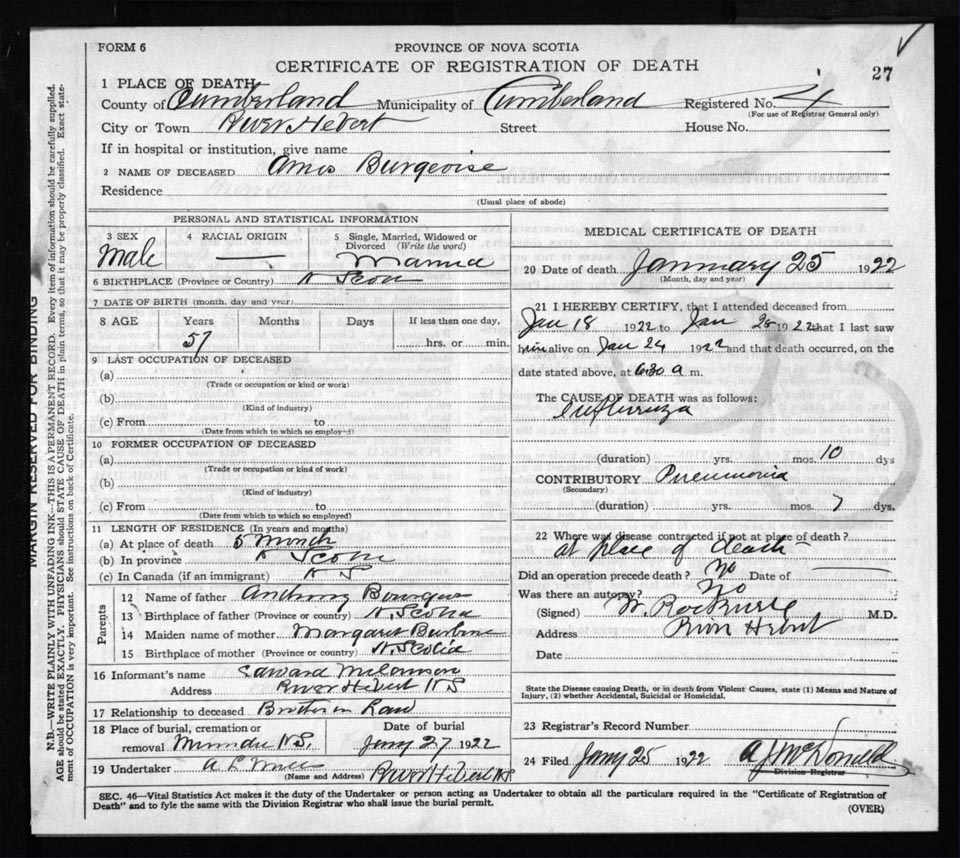 FORM 6
PROVINCE OF NOVA SCOTIA
CERTIFICATE OF REGISTRATION OF DEATH
27
1 PLACE OF DEATH
County of Cumberland Municipality of Cumberland Registered No. 4
(For use of Registrar General only)
City or Town River Hebert Street House No.
If in hospital or institution, give name
2 NAME OF DECEASED Amos Burgeoise
Residence
(Usual place of abode)
PERSONAL AND STATISTICAL INFORMATION
3 SEX 4 RACIAL ORIGIN 5 Single, Married, Widowed or
Divorced (Write the word)
Male — Married
6 BIRTHPLACE (Province or Country) N Scotia
7 DATE OF BIRTH (month, day and year)
8 AGE Years Months Days If less than one day,
57 hrs. or min.
9 LAST OCCUPATION OF DECEASED
(a)
(Trade or occupation or kind or work)
(b)
(Kind of industry)
(c) From to
(Date from which to which so employed)
10 FORMER OCCUPATION OF DECEASED
(a)
(Trade or occupation or kind of work)
(b)
(Kind of industry)
(c) From to
(Date from which to which so employed)
11 LENGTH OF RESIDENCE (In years and months)
(a) At place of death 5 Month
(b) In province N Scotia
(c) In Canada (if an immigrant) N S
Parents
12 Name of father Anthony
13 Birthplace of father (Province or country) N. Scotia
14 Maiden name of mother Margaret
15 Birthplace of mother (Province or country) N. Scotia
16 Informant's name Edward
Address River Hebert N S
17 Relationship to deceased Brother in Law
18 Place of burial, cremation or Date of burial
removal Minudie N S. Jany 27 1922
19 Undertaker A L
(Name and Address) River Hebert N S
MEDICAL CERTIFICATE OF DEATH
20 Date of death January 25 1922
(Month, day and year)
21 I HEREBY CERTIFY, that I attended deceased from
Jan 18 1922 to Jan 25 1922 that I last saw
him alive on Jan 24 1922 and that death occurred, on the
date stated above, at 6.30 a m.
The CAUSE OF DEATH was as follows:
Influenza
(duration) yrs. mos. 10 dys
CONTRIBUTORY Pneumonia
(Secondary)
(duration) yrs. mos. 7 dys.
22 Where was disease contracted if not at place of death?
at place of death
Did an operation precede death? No Date of —
Was there an autopsy? No
(Signed) M.D.
Address River Hebert
Date
State the Disease causing Death, or in death from Violent Causes, state (1) Means and Nature of
Injury, (2) whether Accidental, Suicidal or Homicidal.
23 Registrar's Record Number
24 Filed Jany 25 1922 A J McDonald
Division Registrar
SEC. 46—Vital Statistics Act makes it the duty of the Undertaker or person acting as Undertaker to obtain all the particulars required in the "Certificate of Registration of
Death" and to fyle the same with the Division Registrar who shall issue the burial permit.
(OVER)
MARGIN RESERVED FOR BINDING
N.B.—WRITE PLAINLY WITH UNFADING INK—THIS IS A PERMANENT RECORD. Every item of information should be carefully supplied.
AGE should be stated EXACTLY. PHYSICIANS should STATE CAUSE OF DEATH in plain terms, so that it may be properly classified. Exact state-
ment of OCCUPATION is very important. See instructions on back of Certificate.